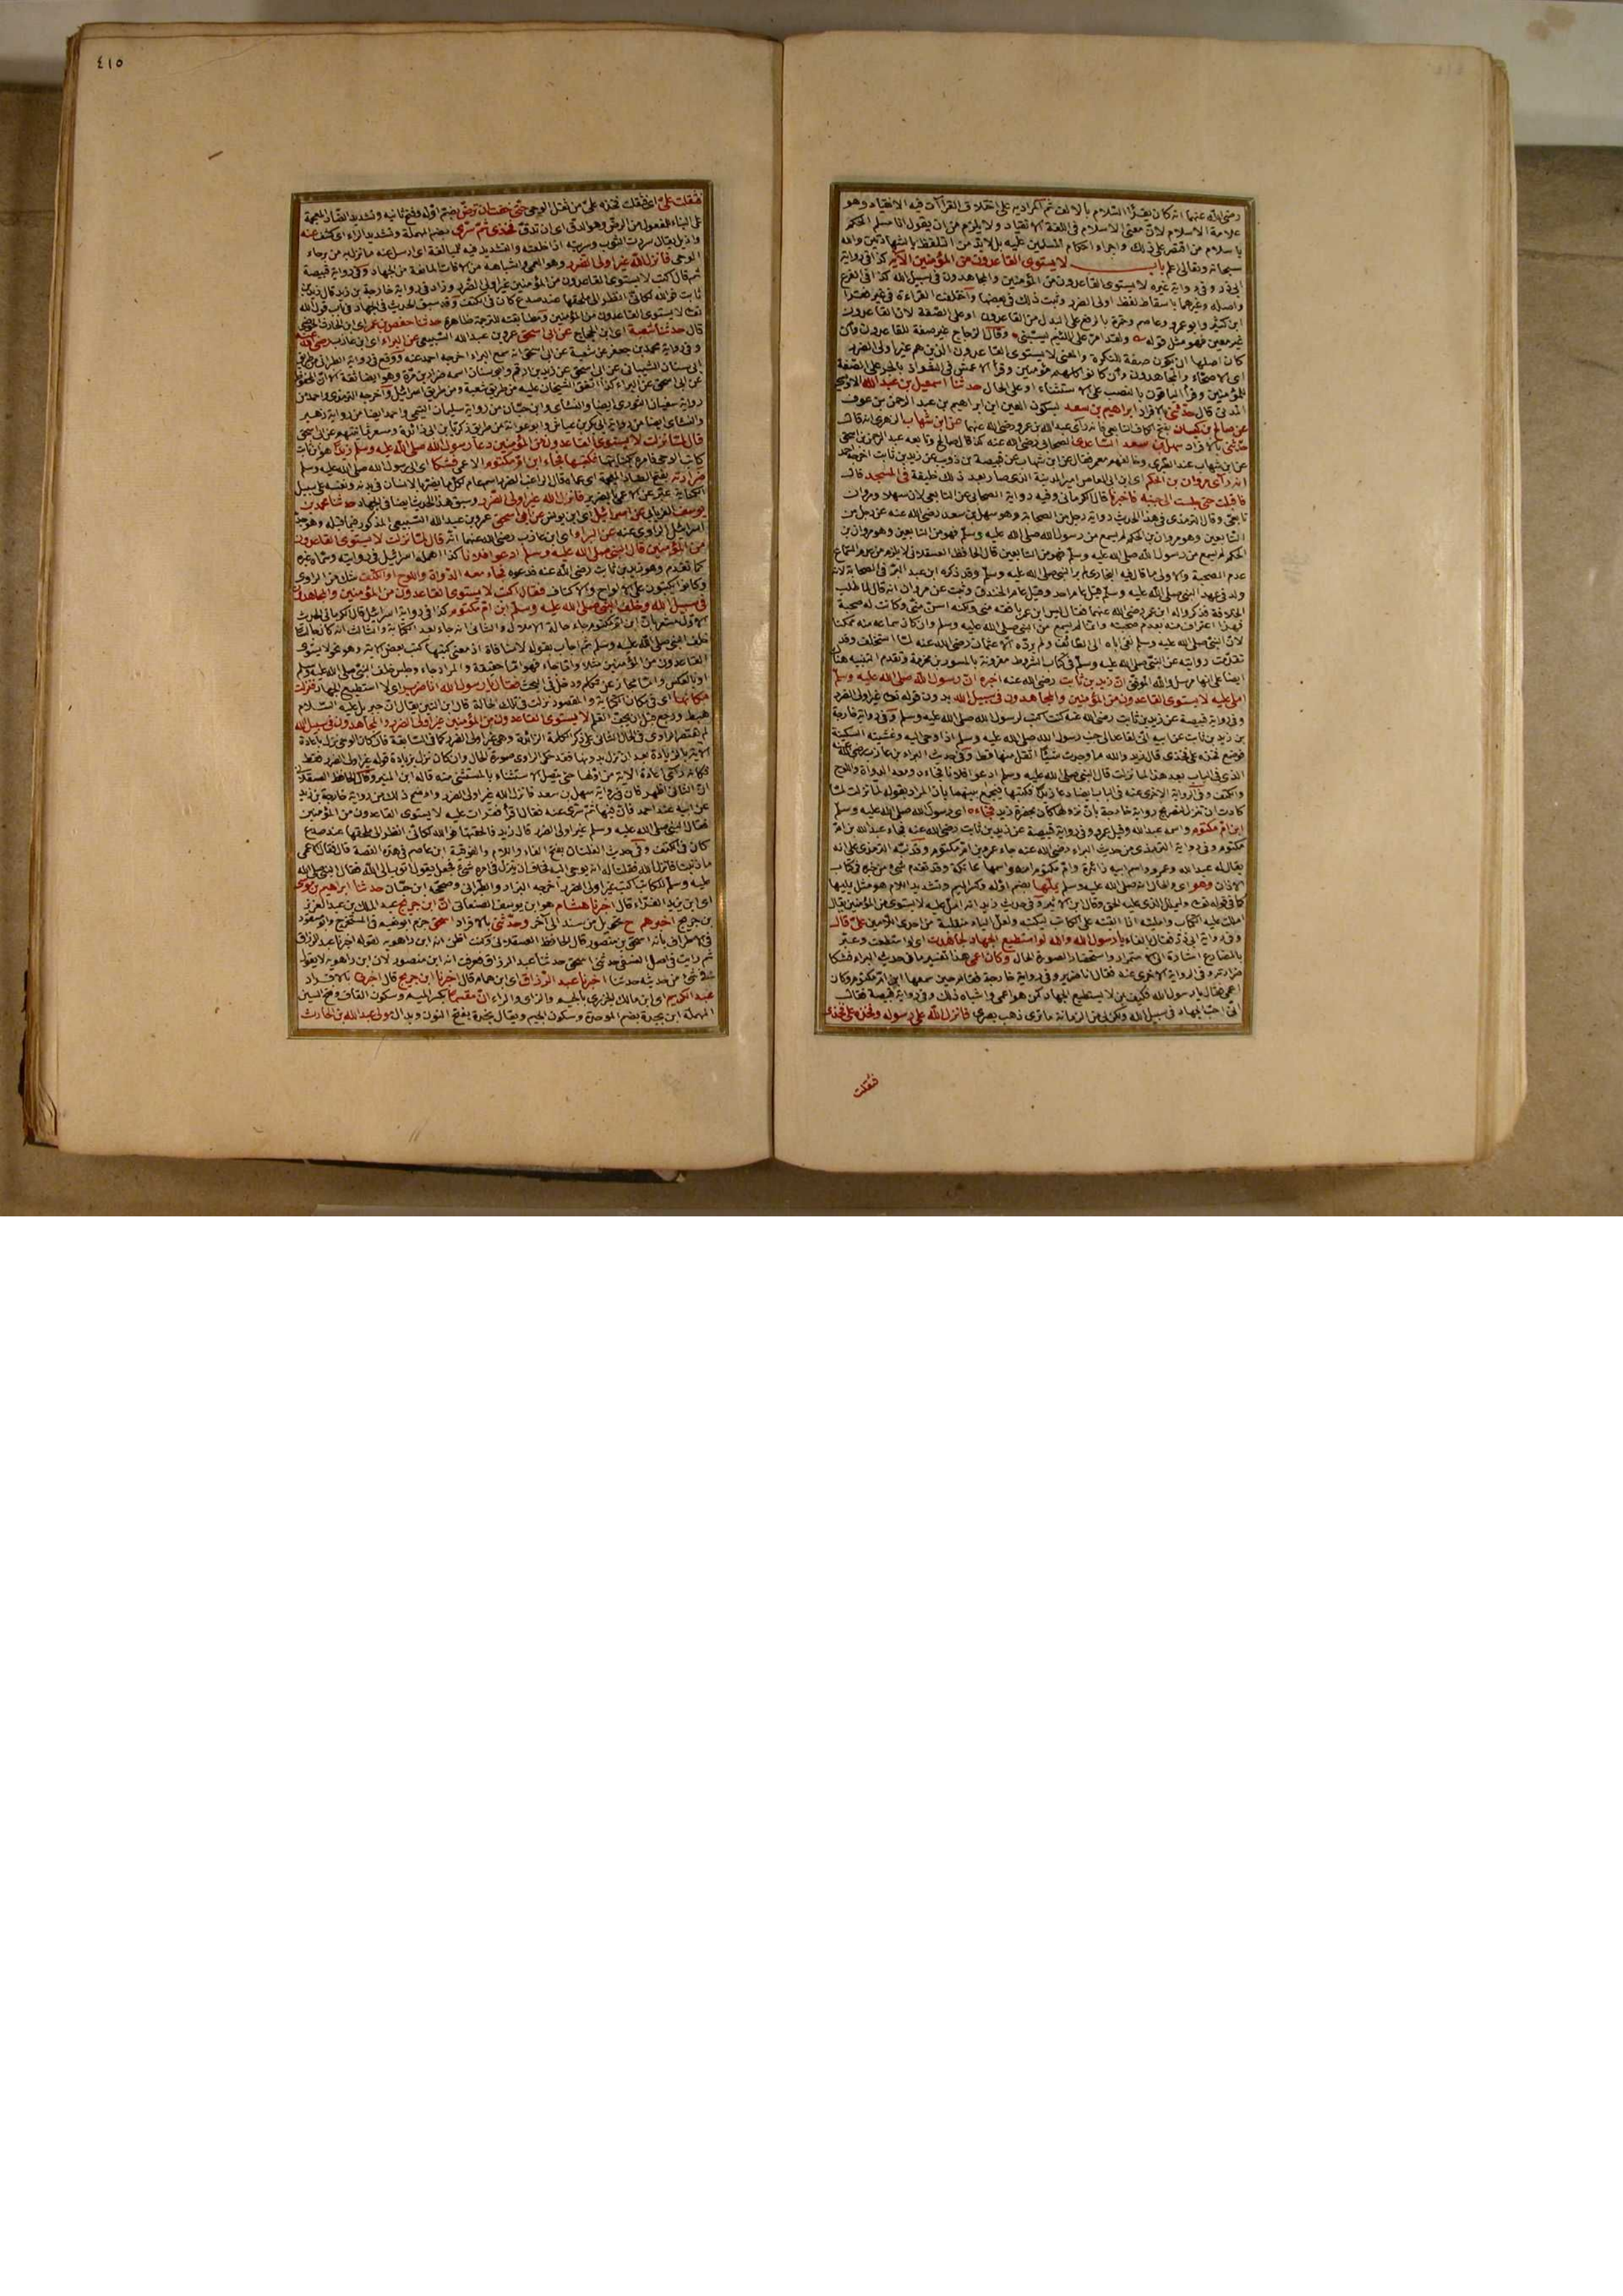 رضي الله عنهما انه كان يقرأ السلام بالالف ثم المراد به على اختلاف القرآآت فيه الانقياد وهو
علامة الاسلام لان معنى الاسلام في اللغة الانقياد ولا يلزم من ان يقول انا مسلم الحكم
باسلام من اقتصر على ذلك واجراء احكام المسلمين عليه بل لابد من التلفظ بالشهادتين والله
سبحانه وتعالى اعلم باب لا يستوى القاعدون من المؤمنين الآية كذا في رواية
ابي ذر وفي رواية غيره لا يستوى القاعدون من المؤمنين والمجاهدون في سبيل الله كذا في الفرع
واصله وغيرهما باسقاط لفظ اولى الضرر وثبت ذلك في بعضها واختلفت القراءة في غير فقرأ
ابن كثير وابو عمرو وعاصم وحمزة بالرفع على البدل من القاعدون او على الصفة لان القاعدون
غير معين فهو مثل قوله ولقد امر على اللئيم يسبنى وقال الزجاج غير صفة للقاعدون وان
كان اصلها ان يكون صفة للنكرة والمعنى لا يستوى القاعدون الذين هم غير اولى الضرر
اى الاصحاء والمجاهدون وان كانوا كلهم مؤمنين وقرأ الاعمش في الشواذ بالجر على الصفة
للمؤمنين وقرأ الباقون بالنصب على الاستثناء او على الحال حدثنا اسمعيل بن عبد الله الاويسي
المدني قال حدثني بالافراد ابراهيم بن سعد بسكون العين ابن ابراهيم بن عبد الرحمن بن عوف
عن صالح بن كيسان بفتح الكاف التابعي فانه رأى عبد الله بن عمر رضي الله عنهما عن ابن شهاب الزهري انه قال
حدثني بالافراد سهل بن سعد الساعدي الصحابي رضي الله عنه كذا قال صالح وتابعه عبد الرحمن بن اسحق
عن ابن شهاب عند الطبري وخالفهم معمر فقال عن ابن شهاب عن قبيصة بن ذؤيب عن زيد بن ثابت اخرجه احمد
انه رأى مروان بن الحكم اى ابن ابي العاص امير المدينة الذي صار بعد ذلك خليفة في المسجد قال
فاقبلت حتى جلست الى جنبه فاخبرنا قال الكرماني وفيه رواية الصحابي عن التابعي لان سهلا ومروان
تابعي وقال الترمذي في هذا الحديث رواية رجل من الصحابة وهو سهل بن سعد رضي الله عنه عن رجل من
التابعين وهو مروان بن الحكم لم يسمع من رسول الله صلى الله عليه وسلم فهو من التابعين وهو مروان بن
الحكم لم يسمع من رسول الله صلى الله عليه وسلم فهو من التابعين قال الحافظ العسقلاني لا يلزم من عدم السماع
عدم الصحبة والاولى ما قال فيه البخاري لم ير النبي صلى الله عليه وسلم وقد ذكره ابن عبد البر في الصحابة لانه
ولد في عهد النبي صلى الله عليه وسلم قبل عام احد وقيل عام الخندق وثبت عن مروان انه قال لما طلب
الخلافة فذكروا له ابن عمر رضي الله عنهما فقال ليس ابن عمر بافقه مني ولكنه اسن مني وكانت له صحبة
فهذا اعتراف منه بعدم صحبته وانما لم يسمع من النبي صلى الله عليه وسلم وان كان سماعه منه ممكنا
لان النبي صلى الله عليه وسلم نفى اباه الى الطائف ولم يرده الا عثمان رضي الله عنه لما استخلف وقد
تقدمت روايته عن النبي صلى الله عليه وسلم في كتاب الشروط مقرونة بالمسور بن مخرمة وتقدم التنبيه هناك
ايضا على انها مرسل والله الموفق ان زيد بن ثابت رضي الله عنه اخبره ان رسول الله صلى الله عليه وسلم
املى عليه لا يستوى القاعدون من المؤمنين والمجاهدون في سبيل الله بدون قوله تعالى غير اولى الضرر
وفي رواية قبيصة عن زيد بن ثابت رضي الله عنه كنت اكتب لرسول الله صلى الله عليه وسلم وفي رواية خارجة
بن زيد بن ثابت عن ابيه انى لقاعد الى جنب رسول الله صلى الله عليه وسلم اذ اوحى اليه وغشيته السكينة
فوضع فخذه على فخذي قال زيد والله ما وجدت شيئا اثقل منها قط وفي حديث البراء بن عازب رضي الله عنه
الذي في الباب بعد هذا لما نزلت قال النبي صلى الله عليه وسلم ادعوا فلانا فجاءه ومعه الدواة واللوح
والكتف وفي الرواية الاخرى عنه في الباب ايضا دعا زيدا فكتبها فيجمع بينهما بان المراد بقوله لما نزلت لما
كادت ان تنزل لتصريح رواية خارجة بان نزولها كان بحضرة زيد فجاءه اى رسول الله صلى الله عليه وسلم
ابن ام مكتوم واسمه عبد الله وقيل عمرو وفي رواية قبيصة عن زيد بن ثابت رضي الله عنه فجاء عبد الله بن ام
مكتوم وفي رواية الترمذي من حديث البراء رضي الله عنه جاء عمرو بن ام مكتوم وقد نبه الترمذي على انه
يقال له عبد الله وعمرو واسم ابيه زائدة وام مكتوم امه واسمها عاتكة وقد تقدم شئ من خبره في كتاب
الاذان وهو اى والحال انه صلى الله عليه وسلم يملها بضم اوله وكسر الميم وتشديد اللام هو مثل يمليها
املت عليه الكتاب وامليته اذا القيته على الكاتب ليكتبه ولعل الياء منقلبة من احدى اللامين علي قال
وفي رواية ابي ذر فقال بالفاء يا رسول الله والله لو استطيع الجهاد لجاهدت اى لو استطعت وعبر
بالمضارع اشارة الى الاستمرار واستحضارا لصورة الحال وكان اعمى هذا تفسير ما في حديث البراء فشكا
ضرارته وفي الرواية الاخرى عنه فقال انا ضرير وفي رواية خارجة فقام حين سمعها ابن ام مكتوم وكان
اعمى فقال يا رسول الله فكيف بمن لا يستطيع الجهاد ممن هو اعمى واشباه ذلك وفي رواية قبيصة فقال
انى احب الجهاد في سبيل الله ولكن بي من الزمانة ما ترى ذهب بصري فانزل الله على رسوله وفخذه على فخذي
فثقلت
٤١٥
فثقلت علي اى ثقلت فخذه علي من ثقل الوحي حتى خفت ان ترض بضم اوله وفتح ثانيه وتشديد الضاد المعجمة
على البناء للمفعول من الرض وهو الدق اى ان تدق فخذي ثم سري بضم المهملة وتشديد الراء اى كشف عنه
الوحي فانزل الله غير اولى الضرر وهو العمى واشباهه من الآفات المانعة من الجهاد وفي رواية قبيصة
ثم قال اكتب لا يستوى القاعدون من المؤمنين غير اولى الضرر وزاد في رواية خارجة بن زيد قال زيد بن
ثابت فوالله لكاني انظر الى ملحقها عند صدع كان في الكتف وقد سبق الحديث في الجهاد في باب قول الله
تعالى لا يستوى القاعدون من المؤمنين ومطابقته للترجمة ظاهرة حدثنا حفص بن عمر اى ابن الحارث الحوضي
قال حدثنا شعبة اى ابن الحجاج عن ابي اسحق عمرو بن عبد الله السبيعي عن البراء اى ابن عازب رضي الله عنه
وفي رواية محمد بن جعفر عن شعبة عن ابي اسحق انه سمع البراء اخرجه احمد عنه ووقع في رواية الطبراني من طريق
ابي سنان الشيباني عن ابي اسحق عن زيد بن ارقم وابو سنان اسمه ضرار بن مرة وهو ايضا ثقة الا ان المحفوظ
عن ابي اسحق عن البراء كذا اتفق الشيخان عليه من طريق شعبة ومن طريق اسرائيل واخرجه الترمذي واحمد من
رواية سفيان الثوري ايضا والنسائي وابن حبان من رواية سليمان التيمي واحمد ايضا من رواية زهير
والنسائي ايضا من رواية ابي بكر بن عياش وابو عوانة من طريق زكريا بن ابي زائدة ومسعر ثمانيتهم عن ابي اسحق
قال لما نزلت لا يستوى القاعدون من المؤمنين دعا رسول الله صلى الله عليه وسلم زيدا هو ابن ثابت
كاتب الوحي فامره بكتابتها فكتبها فجاء ابن ام مكتوم الاعمى فشكا اى الى رسول الله صلى الله عليه وسلم
ضرارته بفتح الضاد المعجمة اى عماه
فانزل الله غير اولى الضرر وسبق هذا الحديث ايضا في الجهاد حدثنا محمد بن
يوسف الفريابي عن اسرائيل اى ابن يونس عن ابي اسحق عمرو بن عبد الله السبيعي المذكور فيما قبله وهو جد
اسرائيل الراوي عنه عن البراء اى ابن عازب رضي الله عنهما انه قال لما نزلت لا يستوى القاعدون
من المؤمنين قال النبي صلى الله عليه وسلم ادعوا فلانا كذا ابهمه اسرائيل في روايته وسماه غيره
كما تقدم وهو زيد بن ثابت رضي الله عنه فدعوه فجاء معه الدواة واللوح او الكتف شك من الراوي
وكانوا يكتبون على الالواح والاكتاف فقال اكتب لا يستوى القاعدون من المؤمنين والمجاهدون
في سبيل الله وخلف النبي صلى الله عليه وسلم ابن ام مكتوم كذا في رواية اسرائيل قال الكرماني الحديث
القاعدون من المؤمنين مثلا واما جاء فهو اما حقيقة والمراد جاء وجلس خلف النبي صلى الله عليه وسلم
او بالعكس واما مجاز عن تكلم ودخل في البحث فقال يا رسول الله انا ضرير اى لا استطيع الجهاد فنزلت
مكانها اى في مكان الكتابة والمقصود نزلت في تلك الحالة قال ابن التين يقال ان جبريل عليه السلام
هبط ورجع قبل ان يجف القلم لا يستوى القاعدون من المؤمنين غير اولى الضرر والمجاهدون في سبيل الله
ان الثاني اظهر
عن ابيه عند احمد فان فيها ثم سري عنه فقال اقرأ فقرأت عليه لا يستوى القاعدون من المؤمنين
فقال النبي صلى الله عليه وسلم غير اولى الضرر قال زيد فالحقتها فوالله لكاني انظر الى ملحقها عند صدع
كان في الكتف وفي حديث الفلتان بفتح الفاء واللام والفوقية ابن عاصم في هذه القصة قال فقال الاعمى
ما ذنبنا فانزل الله فقلنا له انه يوحى اليه فخاف ان ينزل في امره شئ فجعل يقول اتوب الى الله فقال النبي صلى الله
عليه وسلم للكاتب اكتب غير اولى الضرر اخرجه البزار والطبراني وصححه ابن حبان حدثنا ابراهيم بن موسى
اى ابن يزيد الفراء قال اخبرنا هشام هو ابن يوسف الصنعاني ان ابن جريج عبد الملك بن عبد العزيز
بن جريج اخبرهم ح تحويل من سند الى آخر وحدثني بالافراد اسحق جزم ابو نعيم في المستخرج وابو مسعود
في الاطراف بانه اسحق بن منصور قال الحافظ العسقلاني وكنت اظن انه ابن راهويه لقوله اخبرنا عبد الرزاق
ثم رأيت في اصل النسفي حدثني اسحق حدثنا عبد الرزاق فعرفت انه ابن منصور لان ابن راهويه لا يقول
في شئ من حديثه حدثنا اخبرنا عبد الرزاق اى ابن همام قال اخبرنا ابن جريج قال اخبرني بالافراد
عبد الكريم اى ابن مالك الجزري بالجيم والزاي والراء ان مقسما بكسر الميم وسكون القاف وفتح السين
المهملة ابن بجرة بضم الموحدة وسكون الجيم ويقال نجدة بفتح النون وبدال مولى عبد الله بن الحارث